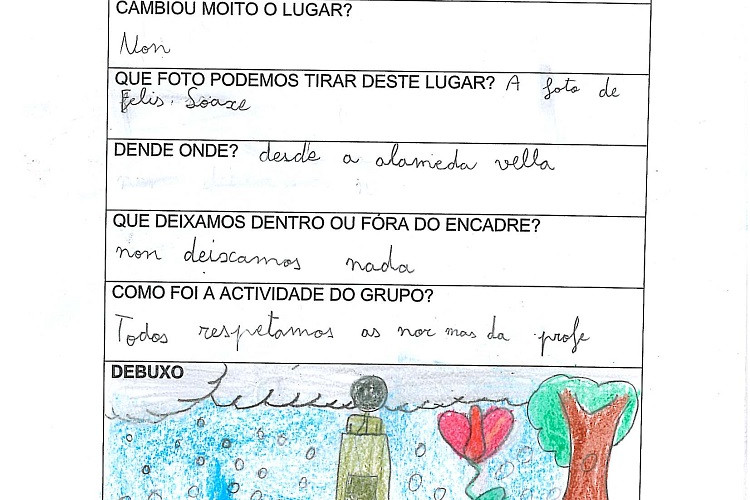 CAMBIOU MOITO O LUGAR?
Non
QUE FOTO PODEMOS TIRAR DESTE LUGAR? A foto de
Felis. Soaxe
DENDE ONDE? desde a alameda vella
QUE DEIXAMOS DENTRO OU FÓRA DO ENCADRE?
non deixcamos nada
COMO FOI A ACTIVIDADE DO GRUPO?
Todos respetamos as normas da profe
DEBUXO